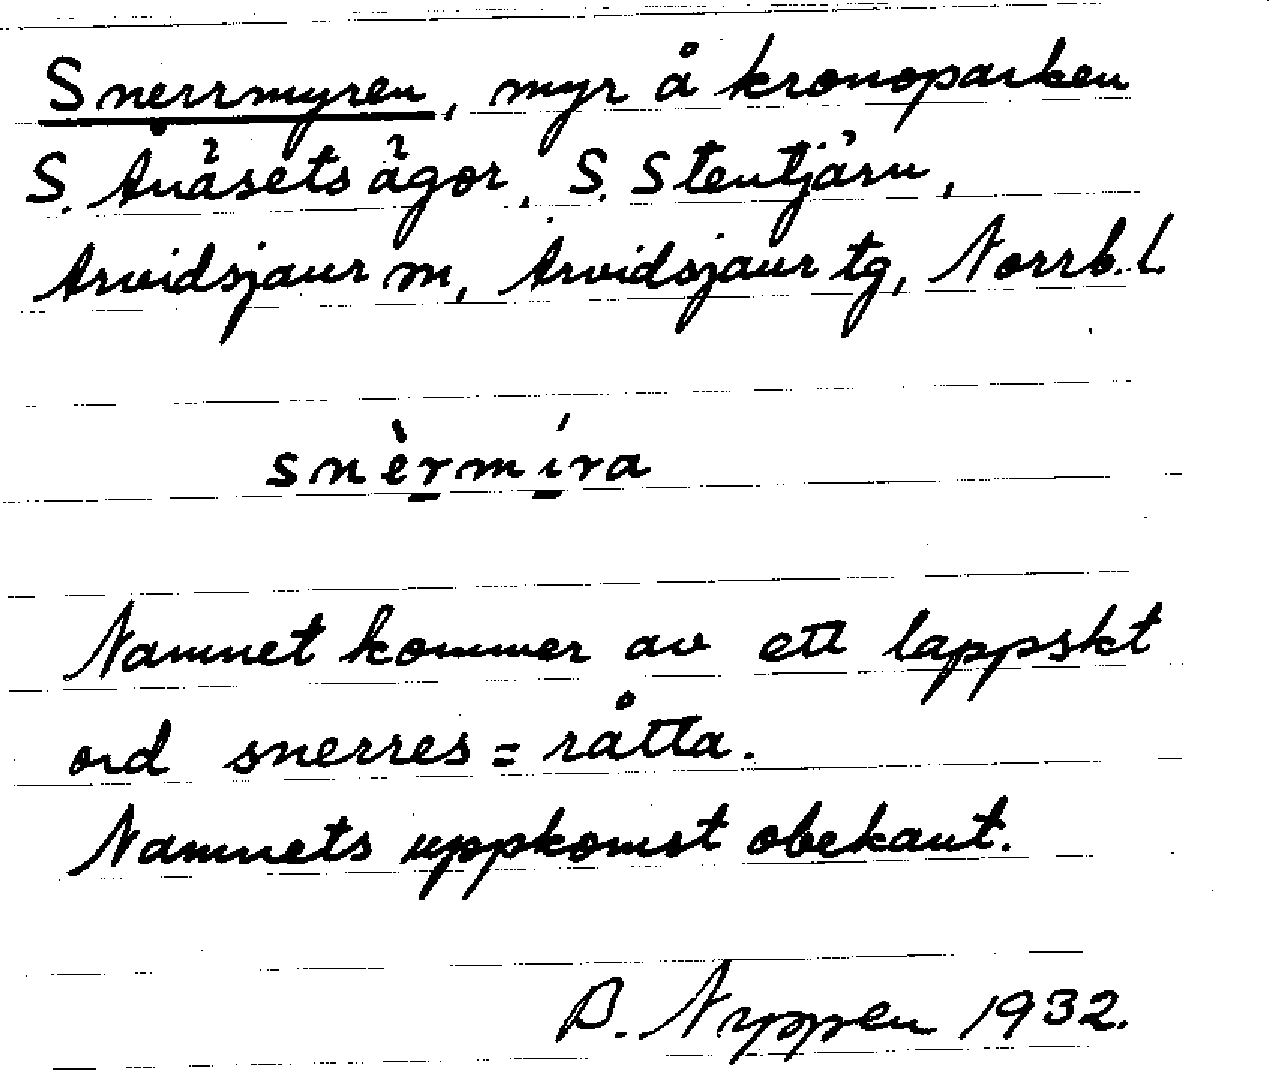 Snerrmyren, myr å kronoparken
S. Auåsets ägor, S. Stentjärn,
Arvidsjaur m, Arvidsjaur tg, Norrb.l.
snèrmíra
Namnet kommer av ett lappskt
ord snerres = råtta.
Namnets uppkomst obekant.
B. Nyppen 1932.